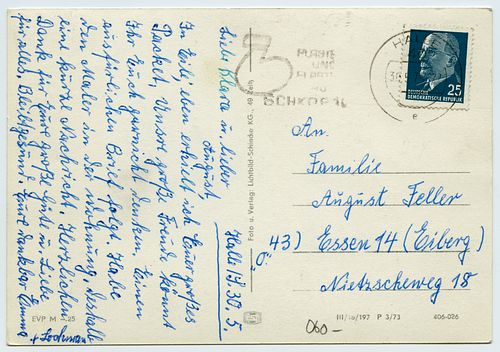 Halle, d. 30. 5.
Liebe Klara u. lieber
August
In Eile, eben erhielt ich Euer großes
Packet, Unsre große Freude könnt
Ihr Euch garnicht denken. Einen
ausführlichen Brief folgt. Habe
den Maler in der Wohnung, deshalb
eine kurze Nachricht. Herzlichen
Dank für Eure große Güte u. Liebe
für alles, Bleibt gesund Eure dankbar Emma
EVP M
.25
Foto u. Verlag: Lichtbild-Schincke KG, 49 Zeitz
PLASTE
UND
SCHKOPAU
HA
30.
e
DEUTSCHE
DEMOKRATISCHE REPUBLIK
25
An.
Familie
August Feller
"O" 43) Essen 14 (Eiberg)
Nietzscheweg 18
III/18/197 P 3/73
406-026
060-